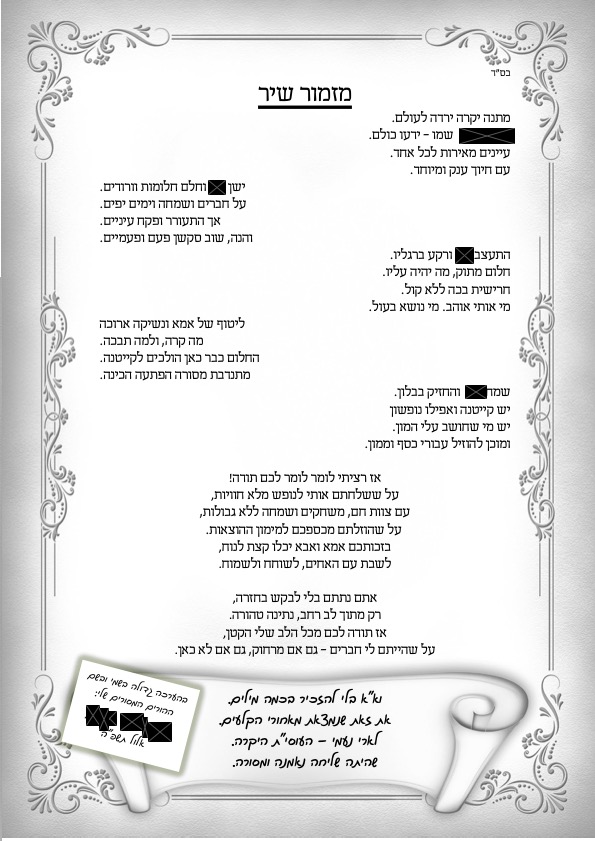 בס"ד
מזמור שיר
מתנה יקרה ירדה לעולם.
שמו – ידעו כולם.
עיניים מאירות לכל אחד.
עם חיוך ענק ומיוחד.
ישן וחלם חלומות וורודים.
על חברים ושמחה וימים יפים.
אך התעורר ופקח עיניים.
והנה, שוב סקשן פעם ופעמיים.
התעצב ורקע ברגליו.
חלום מתוק, מה יהיה עליו.
חרישית בכה ללא קול.
מי אותי אוהב. מי נושא בעול.
ליטוף של אמא ונשיקה ארוכה
מה קרה, ולמה תבכה.
החלום כבר כאן הולכים לקייטנה.
מתנדבת מסורה הפתעה הכינה.
שמח והחזיק בבלון.
יש קייטנה ואפילו נופשון
יש מי שחושב עלי המון.
ומוכן להוזיל עבורי כסף וממון.
אז רציתי לומר לומר לכם תודה!
על ששלחתם אותי לנופש מלא חוויות,
עם צוות חם, משחקים ושמחה ללא גבולות,
על שהוזלתם מכספכם למימון ההוצאות.
בזכותכם אמא ואבא יכלו קצת לנוח,
לשבת עם האחים, לשוחח ולשמוח.
אתם נתתם בלי לבקש בחזרה,
רק מתוך לב רחב, נתינה טהורה.
אז תודה לכם מכל הלב שלי הקטן,
על שהייתם לי חברים – גם אם מרחוק, גם אם לא כאן.
נא"א בלי להזכיר בכמה מילים.
את זאת שנמצאת מאחורי הקלעים.
לארי נעמי – העוסי"ת היקרה.
שהיתה שליחה נאמנה ומסורה.
בהערכה גדולה בשמי ובשם
ההורים המסורים שלי:
אלול תשפ"ה